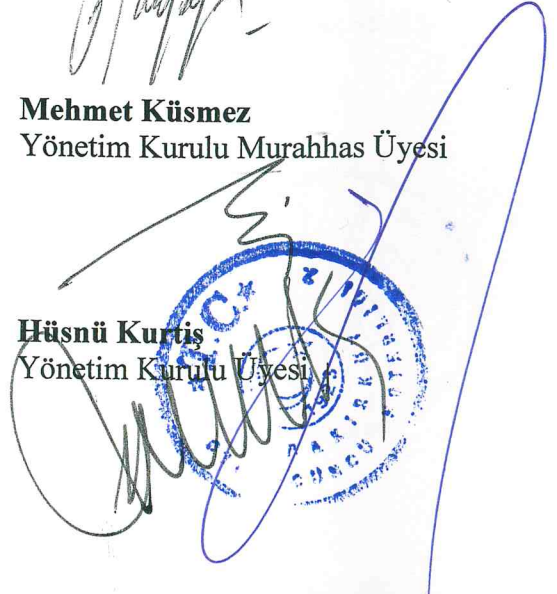 Mehmet Küsmez
Yönetim Kurulu Murahhas Üyesi
Hüsnü Kurtiş
Yönetim Kurulu Üyesi
T.C.